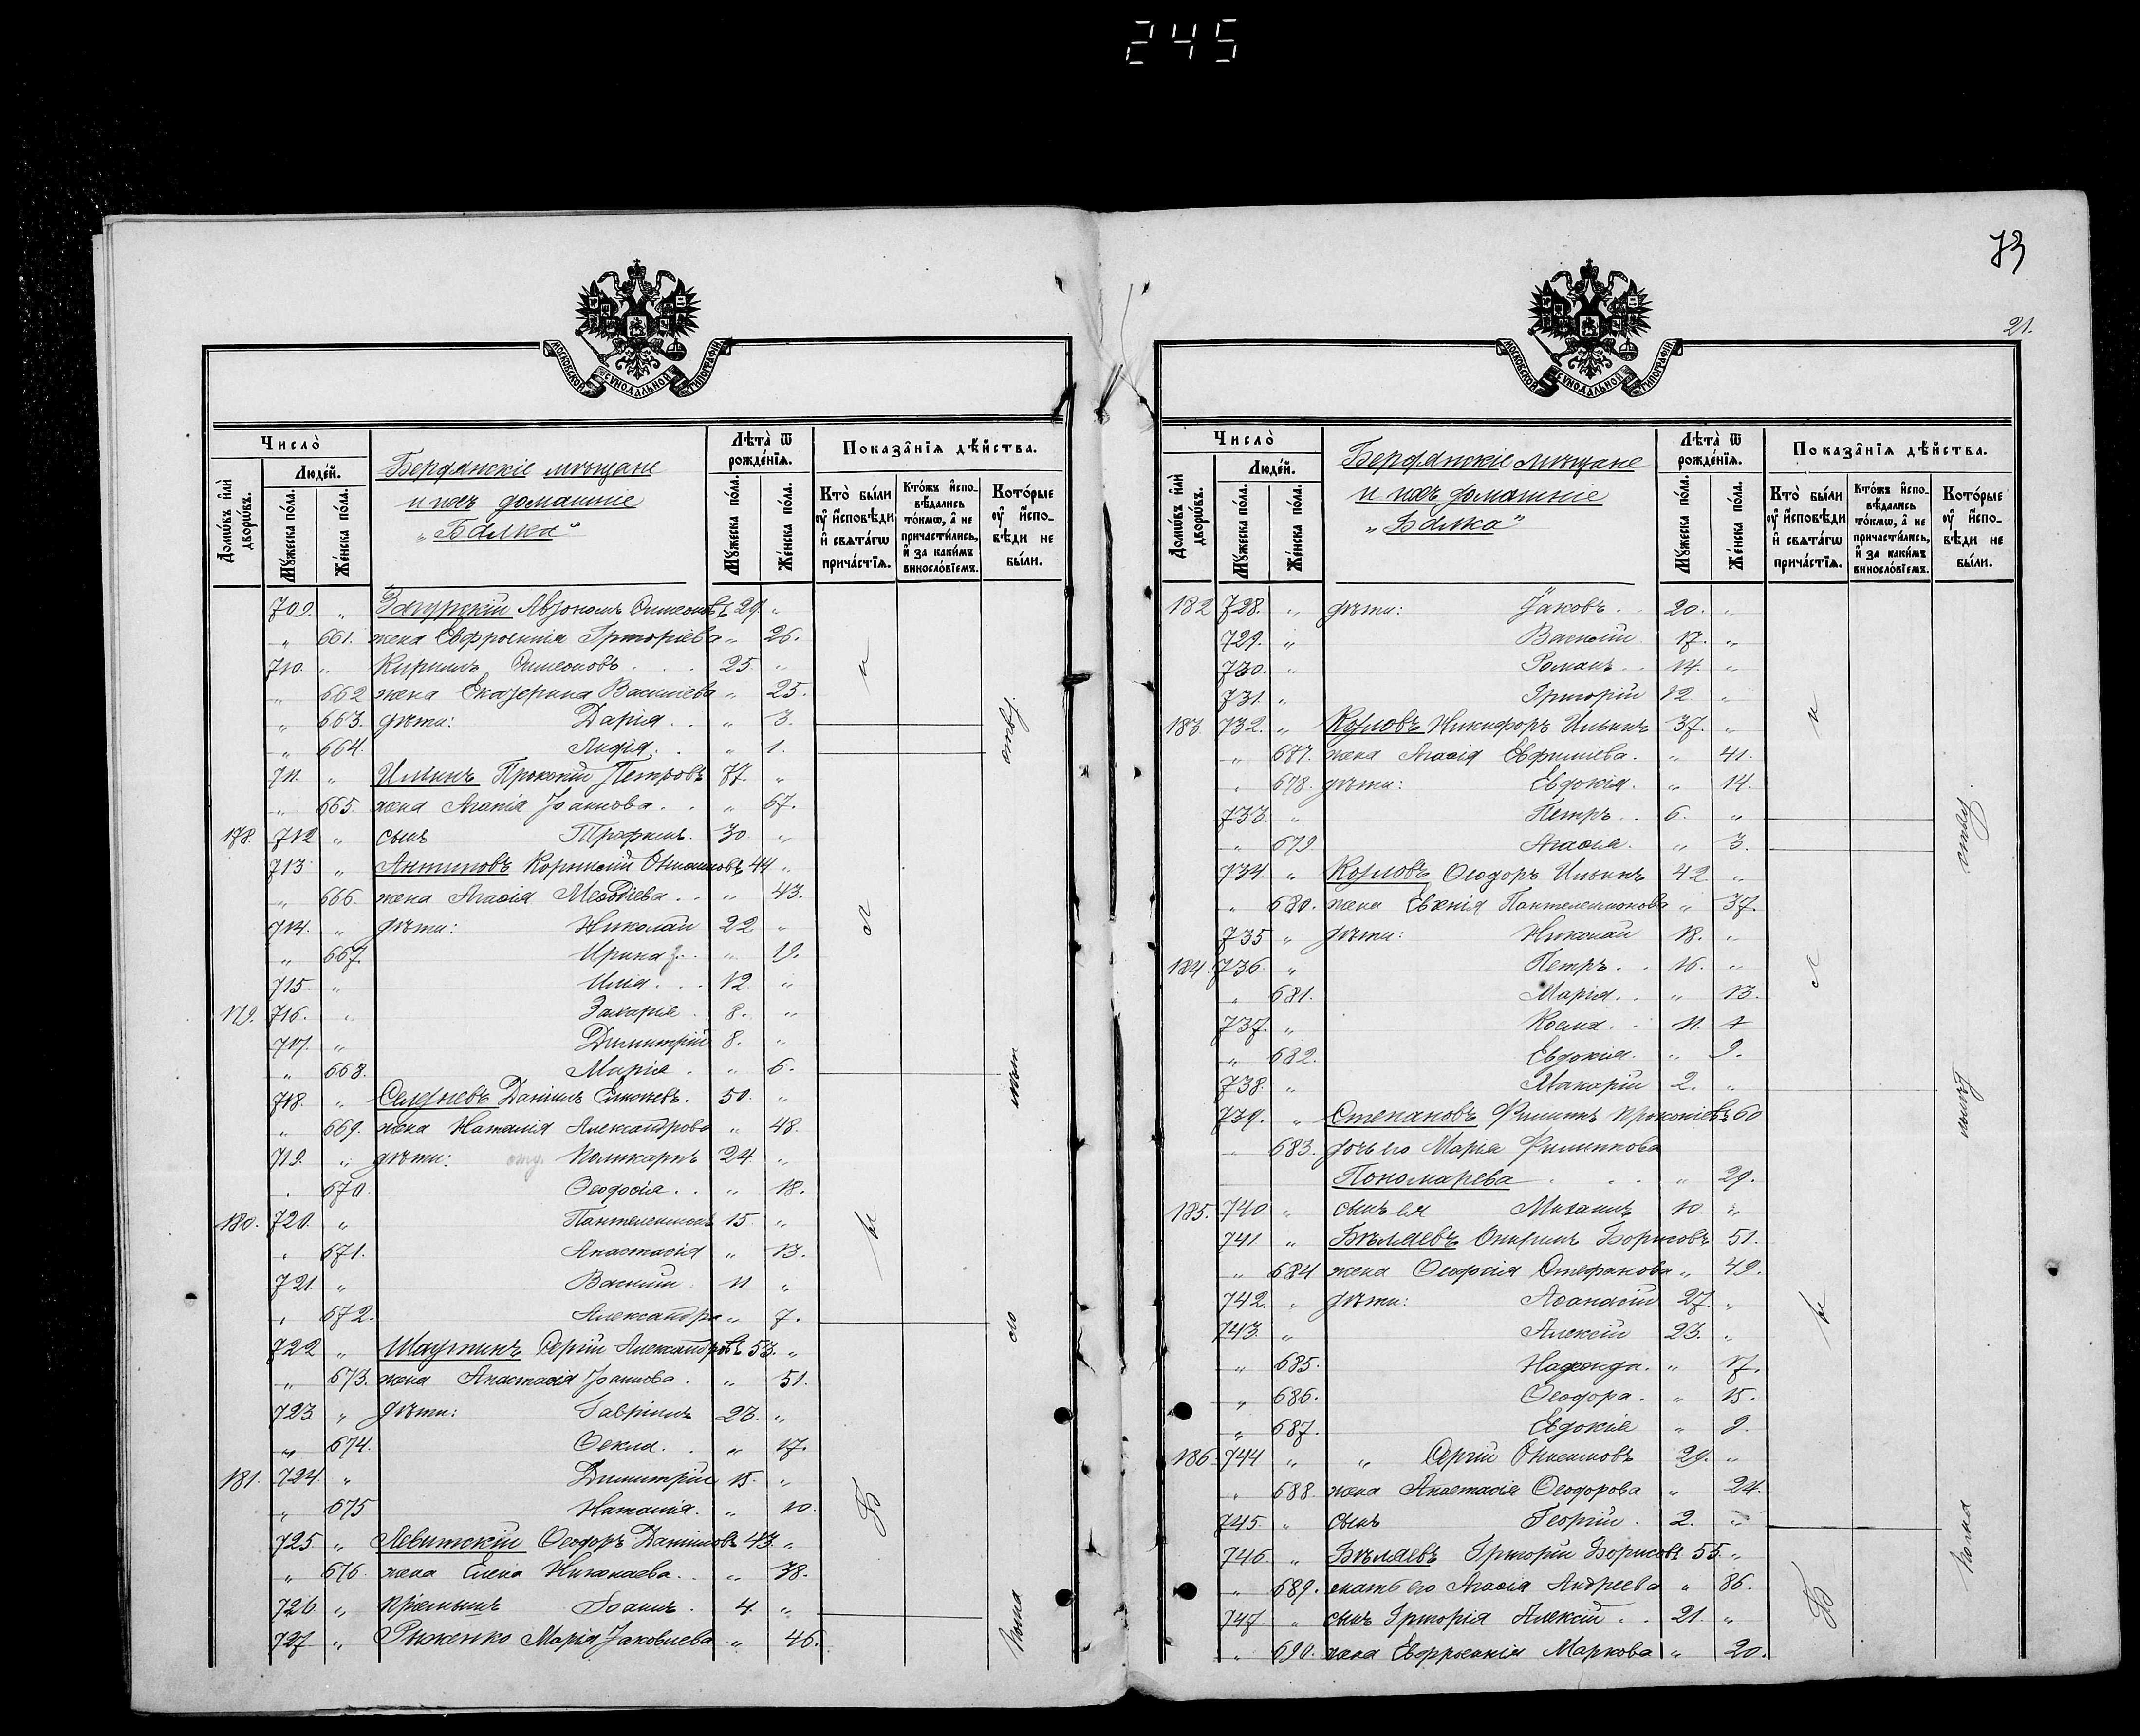 245
МОСКОВСКОЙ СѴНОДАЛЬНОЙ ТИПОГРАФІИ
Число̀
Домѡ́въ и҆лѝ дворѡ́въ.
Люде́й.
Мꙋ́жеска по́ла.
Же́нска по́ла.
Бердянскіе мѣщане
и ихъ домашніе
„Балка"
Лѣта̀ ѿ рожде́нїѧ.
Мꙋ́жеска по́ла.
Же́нска по́ла.
Показа̑нїѧ дѣ́йства.
Кто̀ бы́ли
оу҆ и҆сповѣ́ди
и҆ свѧта́гѡ
прича́стїѧ.
Кто́жъ и҆спо-
вѣ́дались
то́кмѡ, а҆ не
причасти́лись,
и҆ за каки́мъ
виносло́вїемъ.
Кото́рые
оу҆ и҆спо-
вѣ́ди не
бы́ли.
709. „ Загурскій Автономъ Симеоновъ 29. „
„ 661. жена Евфросинія Григоріева „ 26.
710. „ Кириллъ Симеоновъ . . . 25. „
„ 662 жена Екатерина Василіева „ 25.
„ 663. дѣти: Дарія . . „ 3.
„ 664. Лидія. . „ 1.
711. „ Ильинъ Прокопій Петровъ 77. „
„ 665. жена Агапія Іоаннова . . „ 67.
178. 712 „ сынъ Трофимъ. 30. „
713 „ Антиповъ Корнилій 44 „
„ 666. жена Агафія Меѳодіева . . „ 43.
714. „ дѣти: Николай 22 „
„ 667. Ирина . . „ 19.
715. „ Илія . . . 12. „
179. 716. „ Захарія . 8. „
717. „ Димитрій 8. „
„ 668. Марія . „ 6.
718. „ Селезневъ Даніилъ 50. „
„ 669. жена Наталія Александрова „ 48.
719. „ дѣти: отд. Поликарпъ 24. „
„ 670. Ѳеодосія . . „ 18.
180. 720. „ Пантелеимонъ 15. „
„ 671. Анастасія „ 13.
721. „ Василій 11 „
„ 672. Александра „ 7.
722 „ Шаутинъ Сергій Александровъ 53. „
„ 673. жена Анастасія Іоаннова . „ 51.
723 „ дѣти: Гавріилъ 23. „
„ 674. Ѳекла. . „ 17.
181. 724. „ Димитрій 15. „
„ 675 Наталія. „ 10.
725 „ Левитскій Ѳеодоръ Даніиловъ 43. „
„ 676. жена Елена Николаева. . „ 38.
726 „ пріемышъ Іоаннъ . 4. „
727 „ Рыженко Марія Іаковлева „ 46.
73
21.
МОСКОВСКОЙ СѴНОДАЛЬНОЙ ТИПОГРАФІИ
Число̀
Домѡ́въ и҆лѝ дворѡ́въ.
Люде́й.
Мꙋ́жеска по́ла.
Же́нска по́ла.
Бердянскіе мѣщане
и ихъ домашніе
„Балка"
Лѣта̀ ѿ рожде́нїѧ.
Мꙋ́жеска по́ла.
Же́нска по́ла.
Показа̑нїѧ дѣ́йства.
Кто̀ бы́ли
оу҆ и҆сповѣ́ди
и҆ свѧта́гѡ
прича́стїѧ.
Кто́жъ и҆спо-
вѣ́дались
то́кмѡ, а҆ не
причасти́лись,
и҆ за каки́мъ
виносло́вїемъ.
Кото́рые
оу҆ и҆спо-
вѣ́ди не
бы́ли.
182 728. „ дѣти: Іаковъ . . 20. „
729. „ Василій 17. „
730. „ Романъ . . 14. „
731. „ Григорій 12 „
183 732. „ Козловъ Никифоръ Ильинъ 37. „
„ 677. жена Агафія Евфиміева. „ 41.
„ 678. дѣти: Евдокія. „ 14.
733. „ Петръ . . 6. „
„ 679 Агафія. „ 3.
734 „ Козловъ Ѳеодоръ Ильинъ 42. „
„ 680. жена Евгенія Пантелеимонова „ 37.
735 „ дѣти: Николай 18. „
184. 736. „ Петръ . . 16. „
„ 681. Марія. . „ 13.
737. „ Косма. . . 11.
„ 682. Евдокія. „ 9.
738. „ Макарій 2. „
739. „ Степановъ Филиппъ Прокопіевъ 60
„ 683. дочь его Марія Филиппова
Пономарева . . . „ 29.
185. 740. „ сынъ ея Михаилъ 10. „
741 „ Бѣляевъ Борисовъ 51.
„ 684 жена Стефанова „ 49.
742. „ дѣти: Аѳанасій 27. „
743. „ Алексій 23. „
„ 685. Надежда. „ 17.
„ 686. Ѳеодора. „ 15.
„ 687. Евдокія „ 9.
186. 744 „ „ Сергій Онисимовъ 29. „
„ 688. жена Анастасія Ѳеодорова „ 24.
745 „ сынъ Георгій . 2. „
746. „ Бѣляевъ Григорій Борисовъ 55. „
„ 689. мать его Агафія Андреева „ 86.
747. „ сынъ Григорія Алексій . . 21. „
„ 690. жена Евфросинія Маркова „ 20.